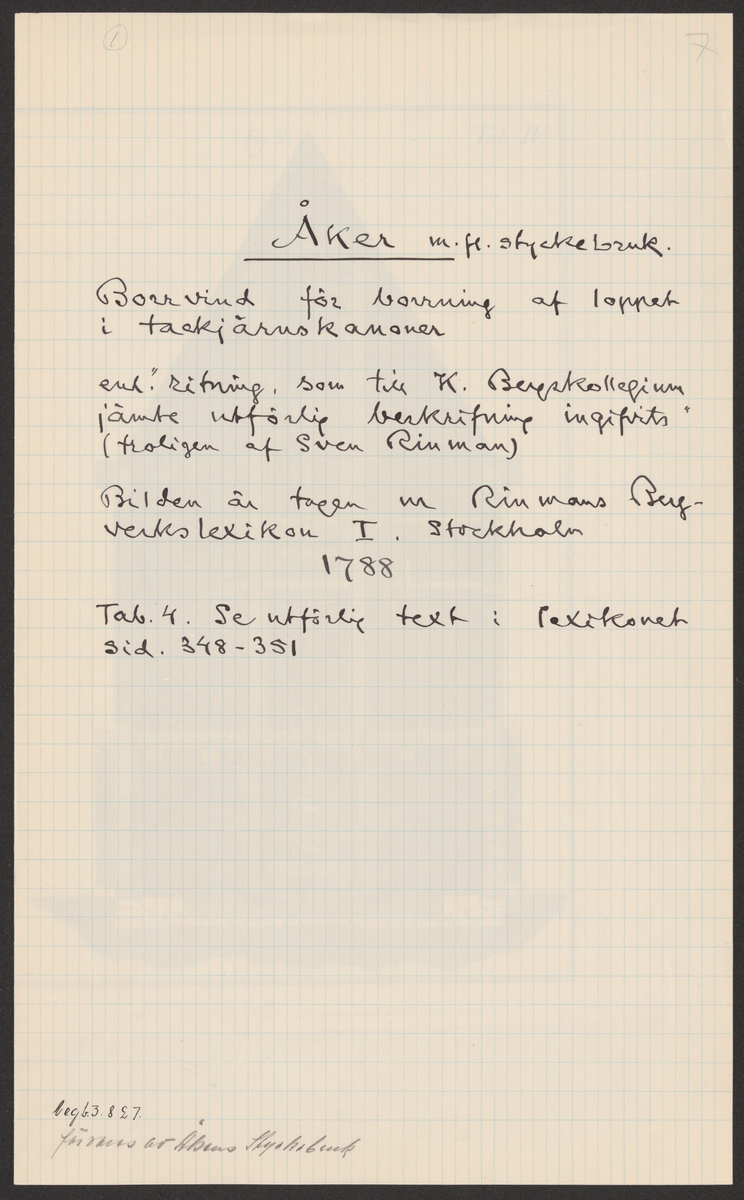 1
7
Åker m.fl. styckebruk.
Borrvind för borrning af loppet
i tackjärnskanoner
enl. "ritning, som till K. Bergskollegium
jämte utförlig beskrifning ingifvits"
(troligen af Sven Rinman)
Bilden är tagen ur Rinmans Berg-
verkslexikon I. Stockholm
1788
Tab. 4. Se utförlig text i lexikonet
sid. 348-351
av Åkers Styckebruk